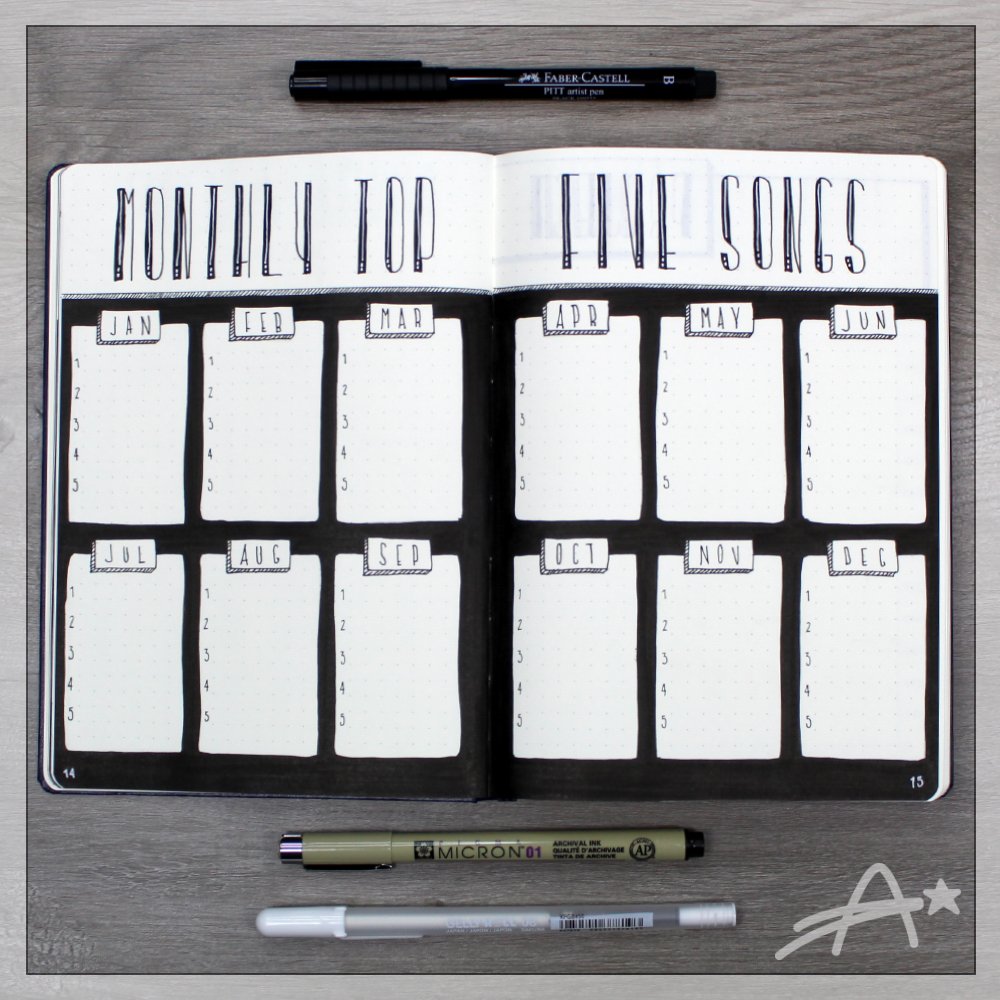 FABER-CASTELL
PITT artist pen
B
MONTHLY TOP FIVE SONGS
JAN
1
2
3
4
5
FEB
1
2
3
4
5
MAR
1
2
3
4
5
APR
1
2
3
4
5
MAY
1
2
3
4
5
JUN
1
2
3
4
5
JUL
1
2
3
4
5
AUG
1
2
3
4
5
SEP
1
2
3
4
5
OCT
1
2
3
4
5
NOV
1
2
3
4
5
DEC
1
2
3
4
5
14
15
MICRON 01
ARCHIVAL INK
QUALITÉ D'ARCHIVAGE
TINTA DE ARCHIVE
AP
A